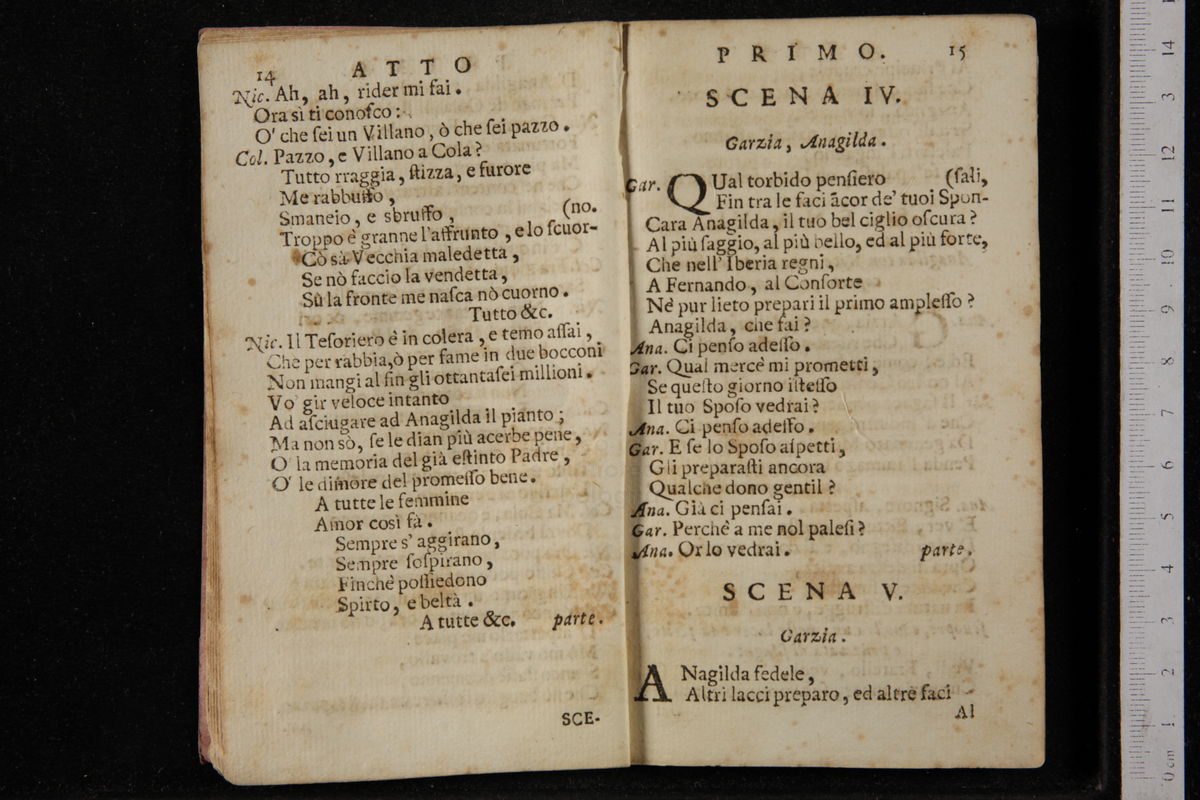 14 ATTO
Nic. Ah, ah, rider mi fai.
Ora sì ti conoſco:
O' che ſei un Villano, ò che ſei pazzo.
Col. Pazzo, e Villano a Cola?
Tutto rraggia, ſtizza, e furore
Me rabbuffo,
Smaneio, e sbruffo, (no.
Troppo è granne l'affrunto, e lo ſcuor-
Cò sà Vecchia maledetta,
Se nò faccio la vendetta,
Sù la fronte me naſca nò cuorno.
Tutto &c.
Nic. Il Teſoriero è in colera, e temo aſſai,
Che per rabbia, ò per fame in due bocconi
Non mangi al fin gli ottantaſei millioni.
Vo' gir veloce intanto
Ad aſciugare ad Anagilda il pianto;
Ma non sò, ſe le dian più acerbe pene,
O' la memoria del già eſtinto Padre,
O' le dimore del promeſſo bene.
A tutte le femmine
Amor così fà.
Sempre s' aggirano,
Sempre ſoſpirano,
Finchè poſſiedono
Spirto, e beltà.
A tutte &c. parte.
SCE-
PRIMO. 15
SCENA IV.
Garzia, Anagilda.
Gar. QUal torbido penſiero (ſali,
Fin tra le faci ācor de' tuoi Spon-
Cara Anagilda, il tuo bel ciglio oſcura?
Al più ſaggio, al più bello, ed al più forte,
Che nell' Iberia regni,
A Fernando, al Conſorte
Nè pur lieto prepari il primo ampleſſo?
Anagilda, che fai?
Ana. Ci penſo adeſſo.
Gar. Qual mercè mi prometti,
Se queſto giorno iſteſſo
Il tuo Spoſo vedrai?
Ana. Ci penſo adeſſo.
Gar. E ſe lo Spoſo aſpetti,
Gli preparaſti ancora
Qualche dono gentil?
Ana. Già ci penſai.
Gar. Perchè a me nol paleſi?
Ana. Or lo vedrai. parte.
SCENA V.
Garzia.
ANagilda fedele,
Altri lacci preparo, ed altre faci
Al
0 cm 1 2 3 4 5 6 7 8 9 10 11 12 3 14